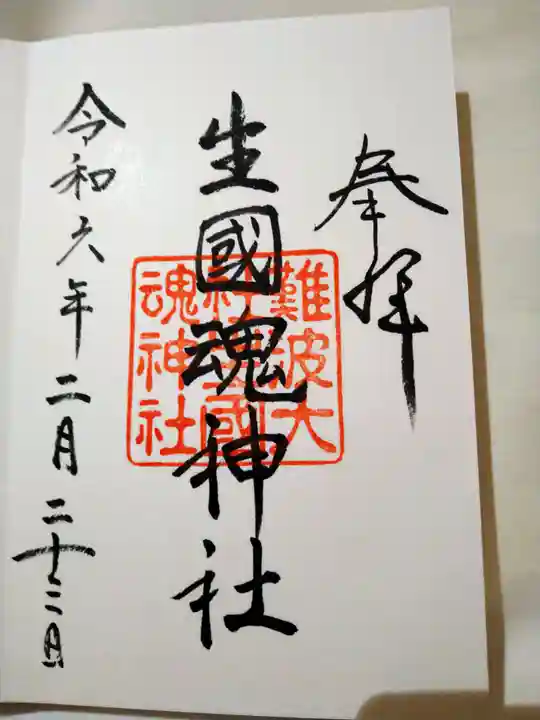 奉拝
生國魂神社
難波大
社生國
魂神社
令和六年二月二十三日